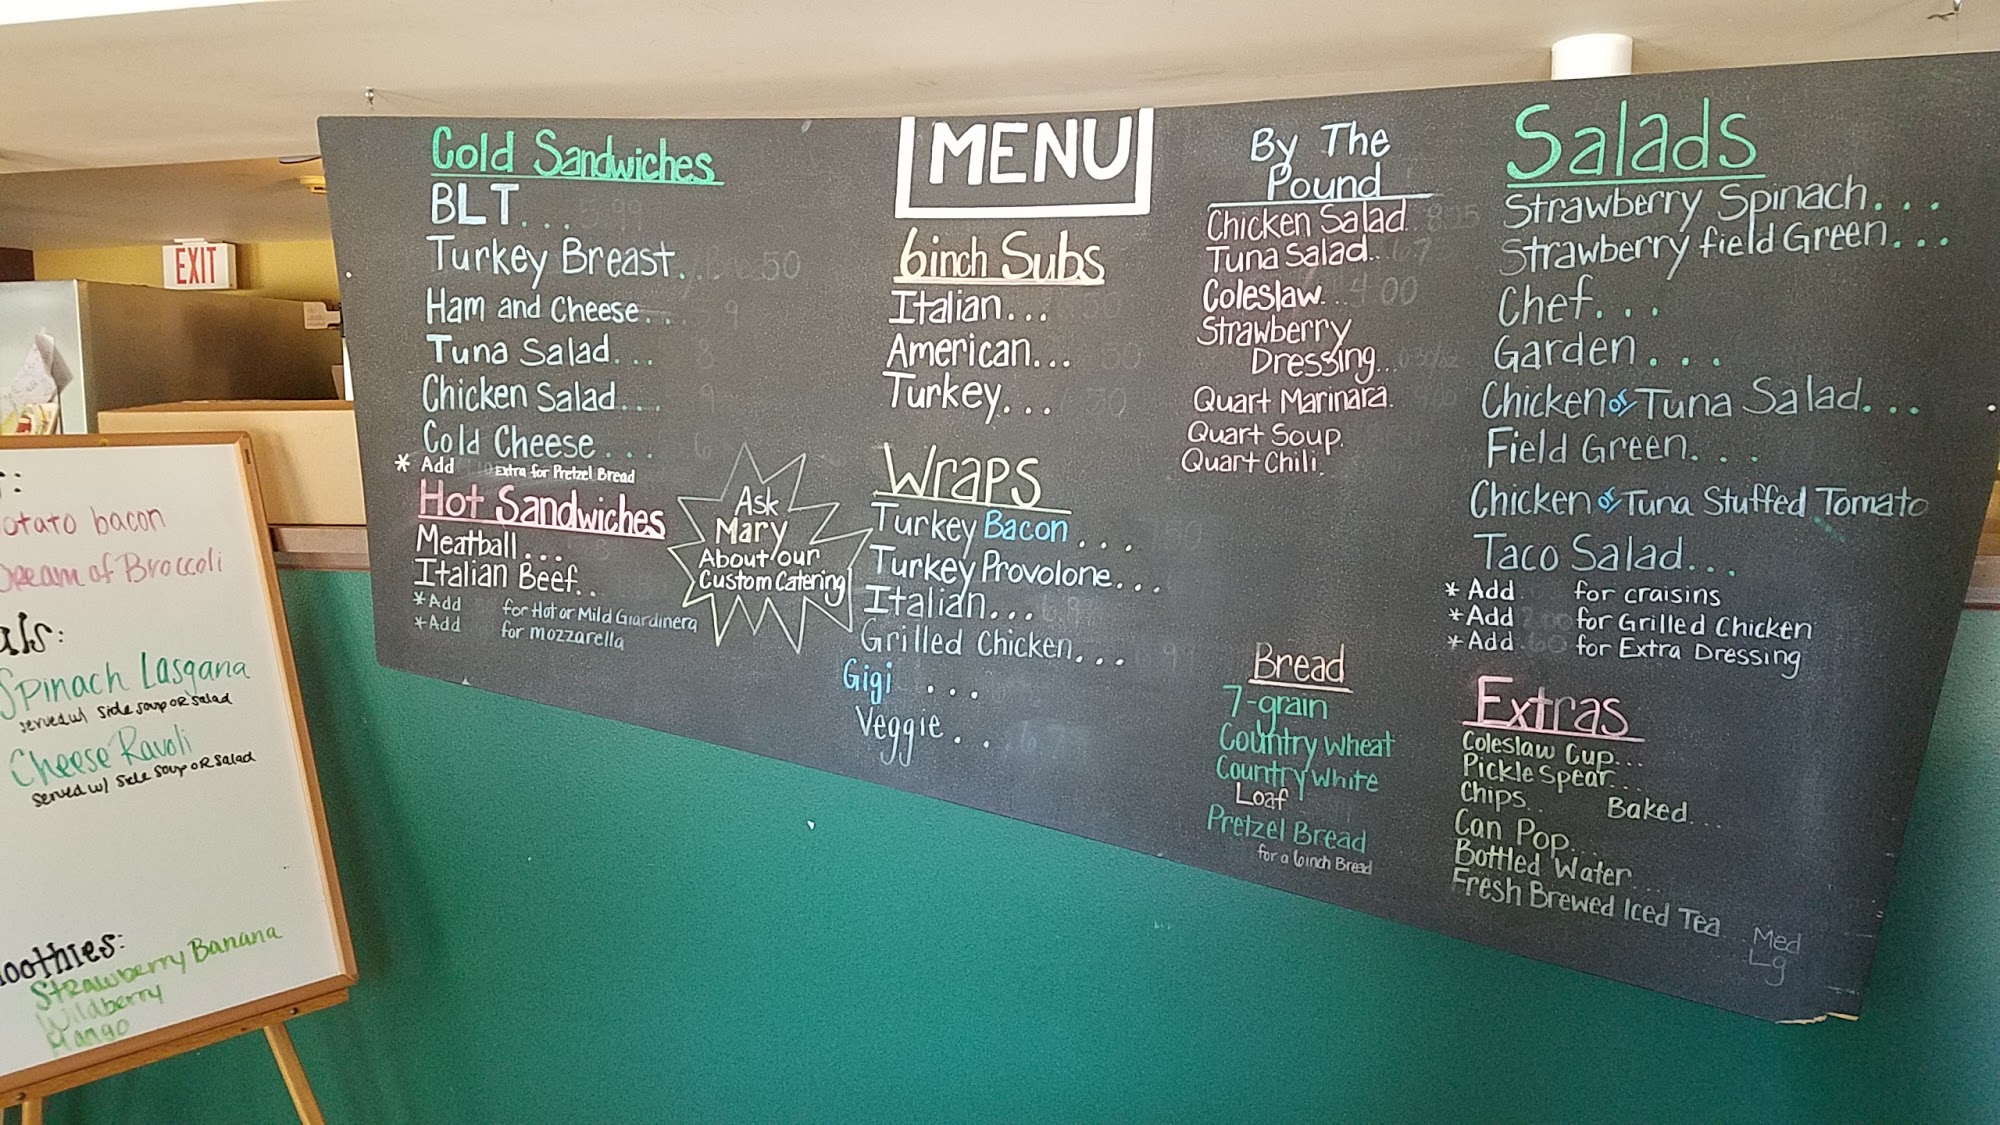 EXIT
otato bacon
ream of Broccoli
als:
Spinach Lasgana
served w/ side soup OR salad
Cheese Ravoli
served w/ side soup OR salad
oothies:
Strawberry Banana
Wildberry
Mango
Cold Sandwiches
BLT...
Turkey Breast...
Ham and Cheese...
Tuna Salad...
Chicken Salad...
Cold Cheese...
* Add Extra for Pretzel Bread
Hot Sandwiches
Meatball...
Italian Beef..
*Add for Hot or Mild Giardinera
*Add for mozzarella
Ask
Mary
About our
Custom Catering
MENU
6inch Subs
Italian...
American...
Turkey...
Wraps
Turkey Bacon...
Turkey Provolone...
Italian...
Grilled Chicken...
Gigi ...
Veggie..
By The
Pound
Chicken Salad
Tuna Salad..
Coleslaw... 4 00
Strawberry
Dressing...
Quart Marinara.
Quart Soup.
Quart Chili.
Bread
7-grain
Country Wheat
Country White
Loaf
Pretzel Bread
for a 6inch Bread
Salads
Strawberry Spinach...
Strawberry Field Green...
Chef...
Garden...
Chicken or Tuna Salad...
Field Green...
Chicken or Tuna Stuffed Tomato
Taco Salad...
* Add for craisins
* Add for Grilled Chicken
* Add .60 for Extra Dressing
Extras
Coleslaw Cup...
Pickle Spear...
Chips.. Baked...
Can Pop...
Bottled Water...
Fresh Brewed Iced Tea... Med
Lg